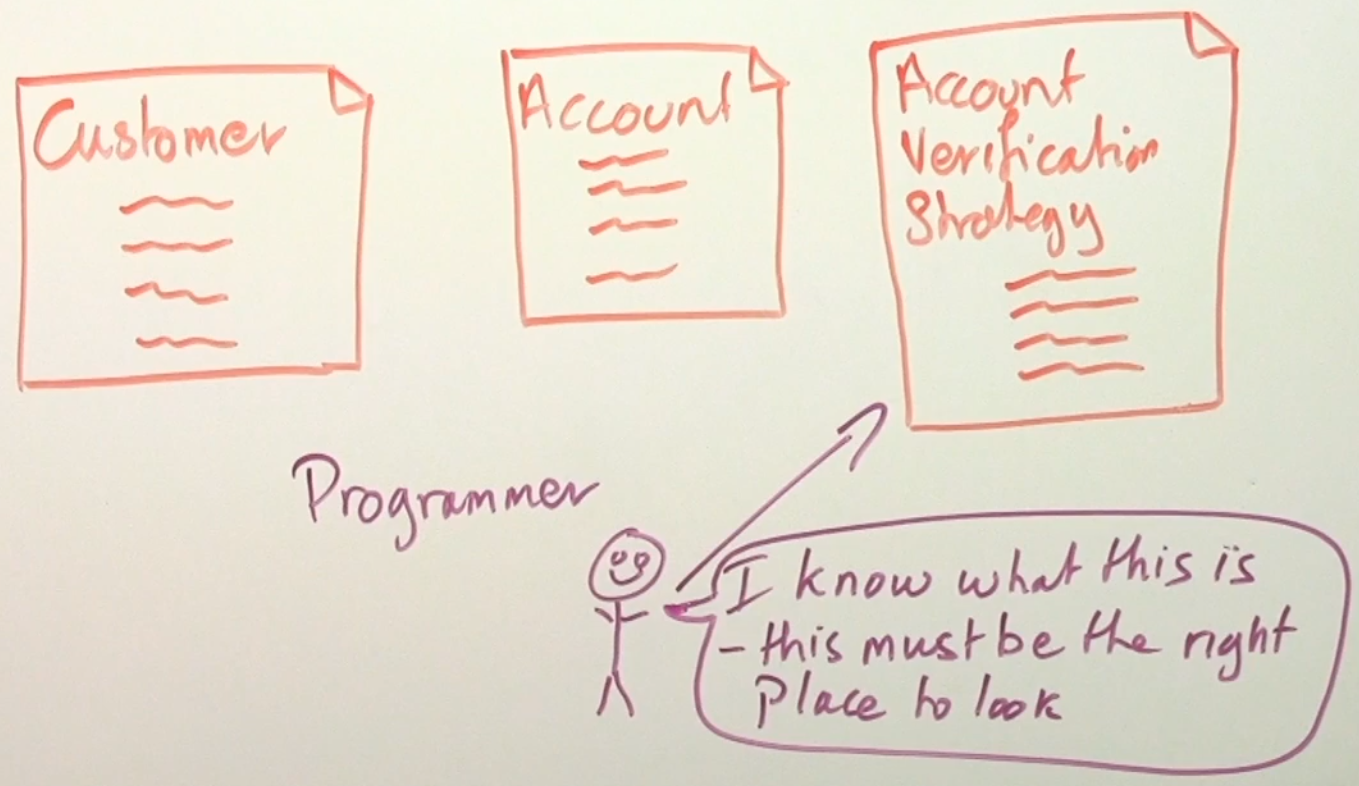 Customer
Account
Account
Verification
Strategy
Programmer
I know what this is
- this must be the right
Place to look